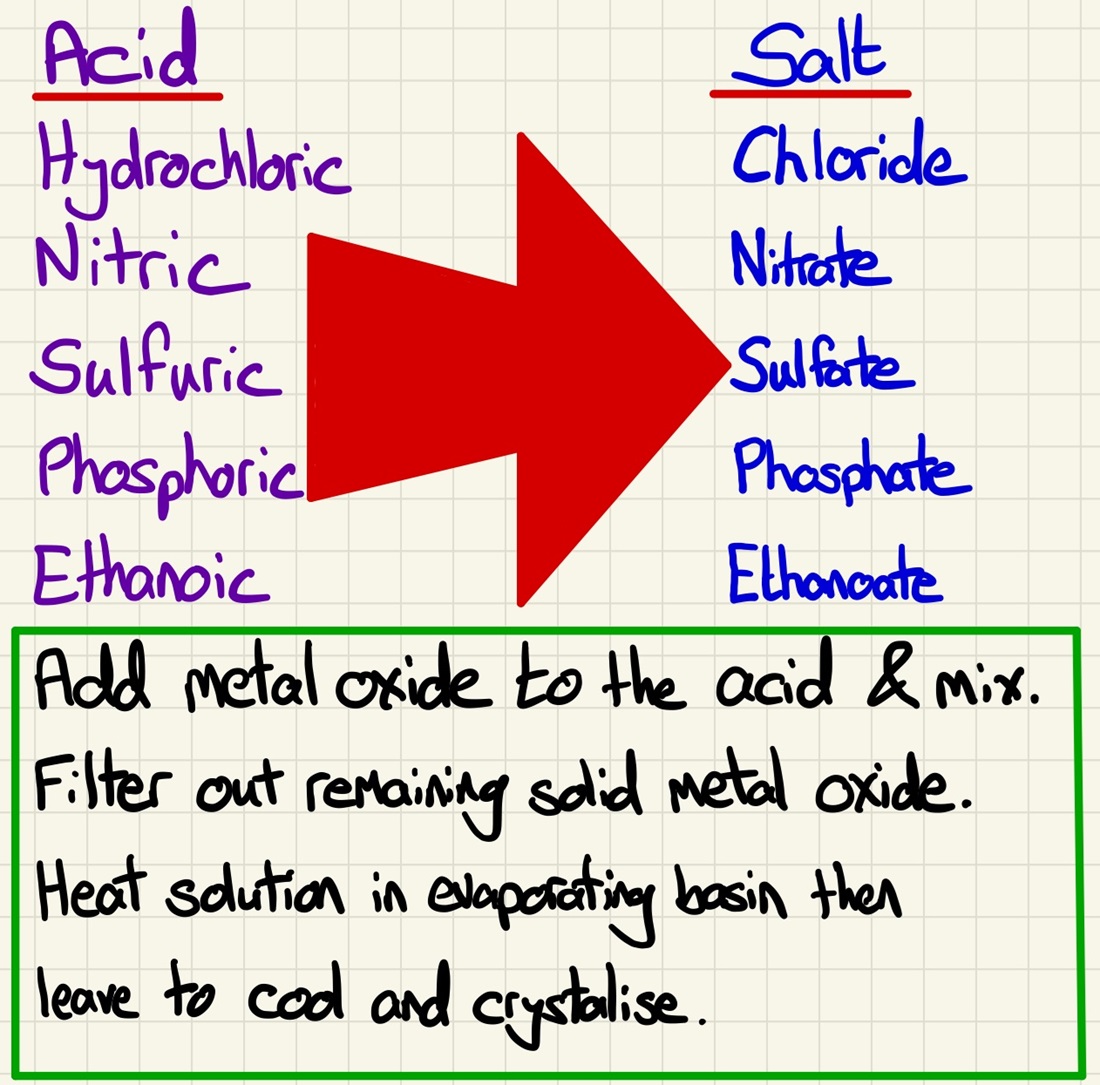 Acid Salt
Hydrochloric Chloride
Nitric Nitrate
Sulfuric Sulfate
Phosphoric Phosphate
Ethanoic Ethanoate
Add metal oxide to the acid & mix.
Filter out remaining solid metal oxide.
Heat solution in evaporating basin then
leave to cool and crystalise.